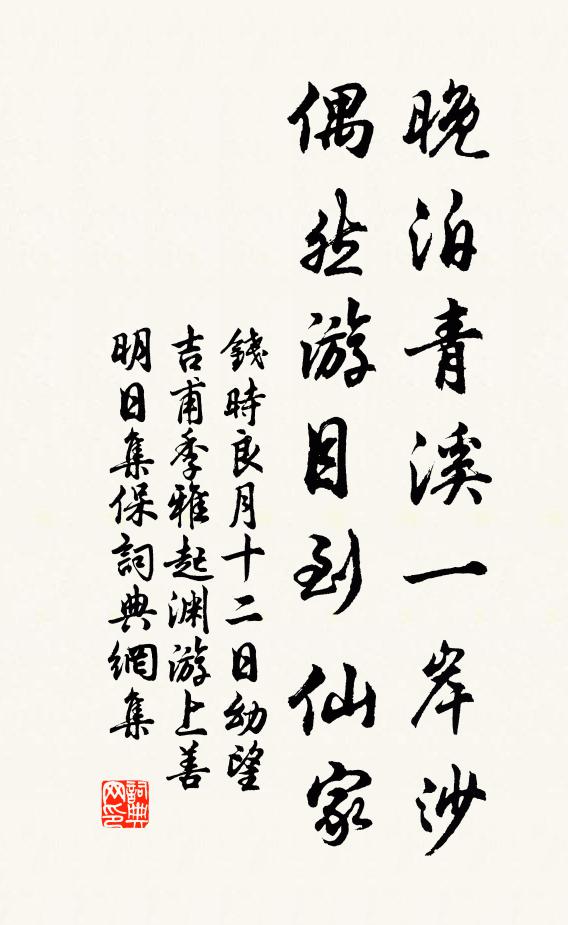 晚泊青溪一岸沙
偶然游目到仙家
錢時良月十二日幼望
吉甫季雅起渊游上善
明日集保詞典網集
詞典网印